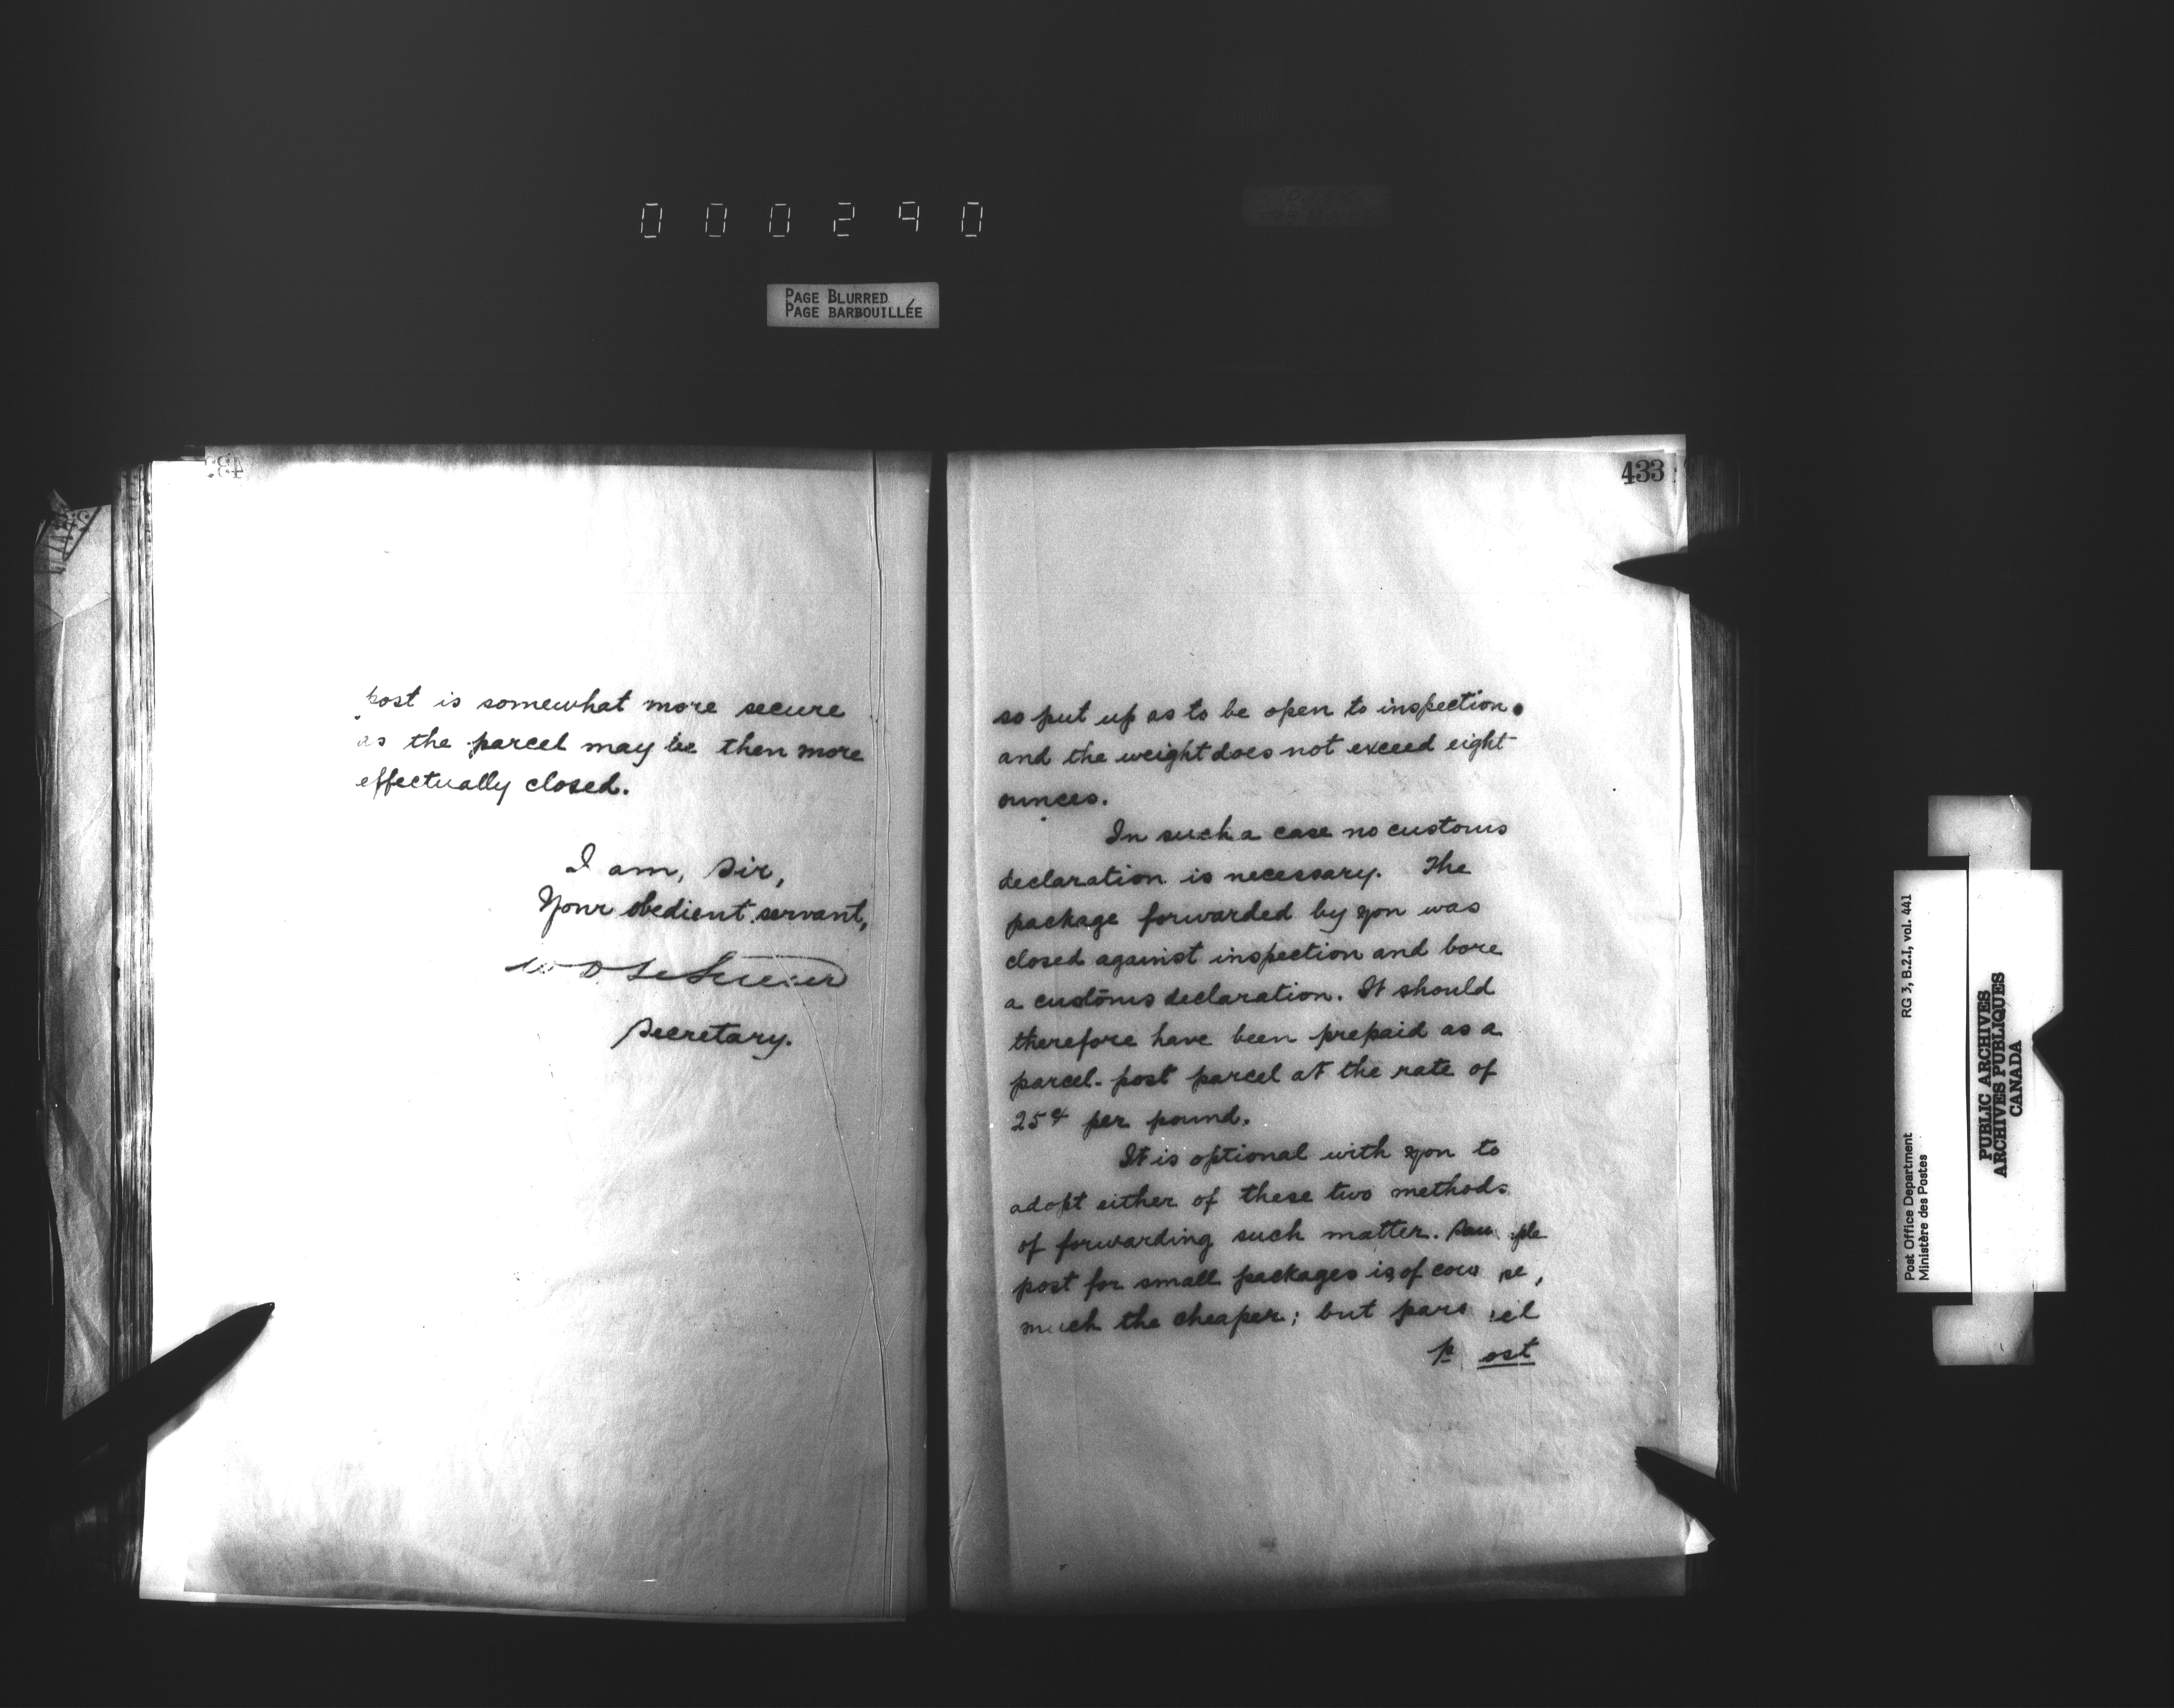 000290
PAGE BLURRED
PAGE BARBOUILLÉE
post is somewhat more secure
as the parcel may be then more
effectually closed.
I am, Sir,
Your obedient servant,
Secretary.
433
so put up as to be open to inspection.
and the weight does not exceed eight
ounces.
In such a case no customs
declaration is necessary. The
package forwarded by you was
closed against inspection and bore
a customs declaration. It should
therefore have been prepaid as a
parcel-post parcel at the rate of
25¢ per pound.
It is optional with you to
adopt either of these two methods
of forwarding such matter. Sample
post for small packages is of course,
much the cheaper; but parcel
post
RG 3, B.2.I, vol. 441
Post Office Department
Ministère des Postes
PUBLIC ARCHIVES
ARCHIVES PUBLIQUES
CANADA